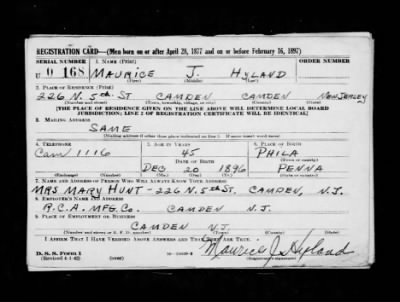 REGISTRATION CARD—(Men born on or after April 28, 1877 and on or before February 16, 1897)
SERIAL NUMBER 1. NAME (Print) ORDER NUMBER
U 0 168 MAURICE J. HYLAND
(First) (Middle) (Last)
2. PLACE OF RESIDENCE (Print)
226 N. 5th ST CAMDEN CAMDEN NEW JERSEY
(Number and street) (Town, township, village, or city) (County) (State)
[THE PLACE OF RESIDENCE GIVEN ON THE LINE ABOVE WILL DETERMINE LOCAL BOARD
JURISDICTION; LINE 2 OF REGISTRATION CERTIFICATE WILL BE IDENTICAL]
3. MAILING ADDRESS
SAME
[Mailing address if other than place indicated on line 2. If same insert word same]
4. TELEPHONE 5. AGE IN YEARS 6. PLACE OF BIRTH
Cam 1116 45 PHILA
DATE OF BIRTH (Town or county)
DEC 20 1896 PENNA
(Exchange) (Number) (Mo.) (Day) (Yr.) (State or country)
7. NAME AND ADDRESS OF PERSON WHO WILL ALWAYS KNOW YOUR ADDRESS
MRS MARY HUNT - 226 N. 5th ST. CAMDEN, N.J.
8. EMPLOYER'S NAME AND ADDRESS
R.C.A. MFG. CO. CAMDEN N.J.
9. PLACE OF EMPLOYMENT OR BUSINESS
CAMDEN N.J.
(Number and street or R. F. D. number) (Town) (County) (State)
I AFFIRM THAT I HAVE VERIFIED ABOVE ANSWERS AND THAT THEY ARE TRUE.
D. S. S. Form 1
(Revised 4-1-42) Maurice J. Hyland